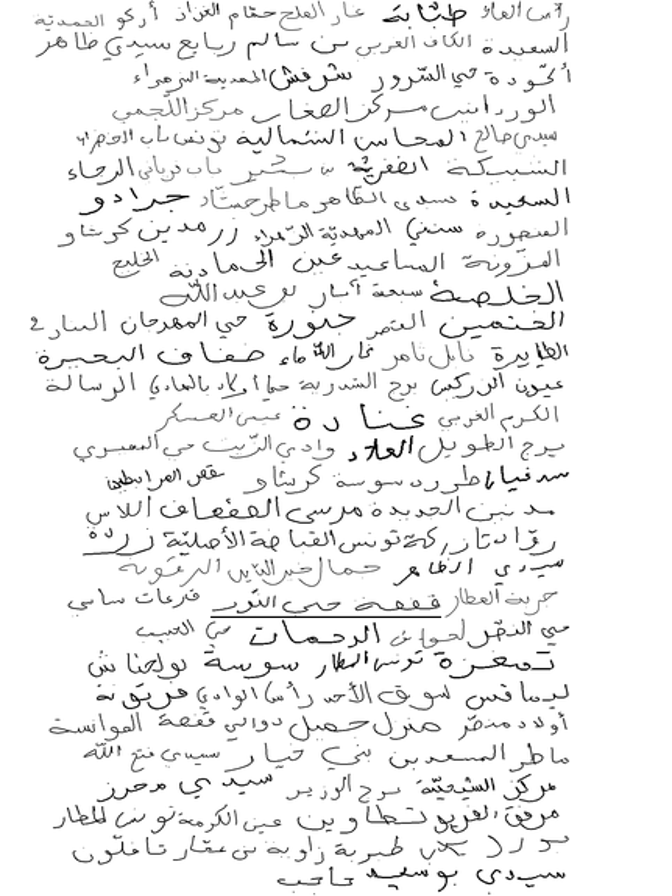 رأس الماء طشابة غار الملح حمام الغزاز أركو المحمدية
السعيدة الكاف الغربي بن سالم ربايع سيدي ظاهر
حي السرور شرفش المحمدية الزهراء
الوردانين مركز الصخار مركز اللجمي
سيدي صالح المحاسن الشمالية تونس باب الخضراء
الشبيكة الصخرية باب قرباني الرجاء
السعيدة سيدي الظاهر ماطر حشاد جرادو
المنصورة سنني المهدية الزهراء زرمدين كريشاو
المزونة المساعيد عين الحمادنة الخليج
الخلصة سبعة آبار بو عبد الله
الخنمين القصر خنورة حي المهرجان المنار 2
الطايرة نابل تامر غار الماء ضفاف البحيرة
عيون الزركين برج الشدرية حي أولاد بالهادي الرسالة
الكرم الغربي غنادة عيسى العسكر
برج الطويل العلاء وادي الزيت حي المعمري
طرود سوسة كريشاو قصر المرابطين
مدنين الجديدة مرسى القفصاف اللاس
رواد تازركة تونس القباضة الأصلية زردة
سيدي الظاهر جمال خير الدين البرغوثية
جربة العطار قفصة حي النور قرعات ساسي
حي النصر لحواش الرحمات حي الحبيب
تمغزة تونس المطار سوسة بولحناش
ليماقس سوق الأحد رأس الوادي قريقونة
أولاد منصر منزل جميل دوالي قفصة الموانسة
ماطر المسعدين بني خيار سيدي فتح الله
مركز الشيحية برج الوزير سيدي محرز
مرفق الفريو تطاوين عين الكرمة تونس المطار
طبرية زاوية بن عمار تافلون
سيدي بوسعيد حاجب